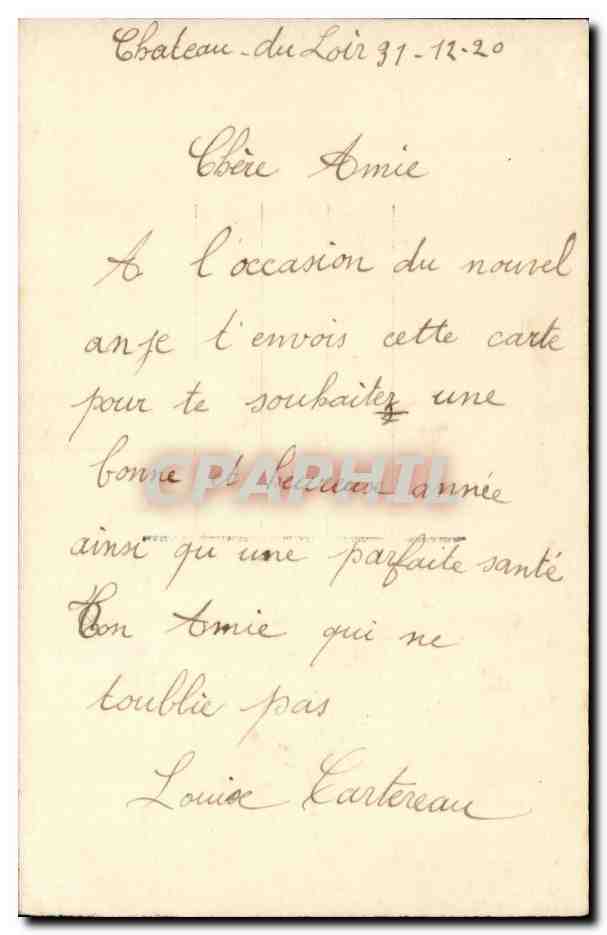 Chateau-du Loir 31-12-20
Chère Amie
A l'occasion du nouvel
an je t'envois cette carte
pour te souhaitez une
bonne et heureuse année
CPAPHIL
ainsi qu'une parfaite santé
Ton Amie qui ne
toublie pas
Louise Cartereau